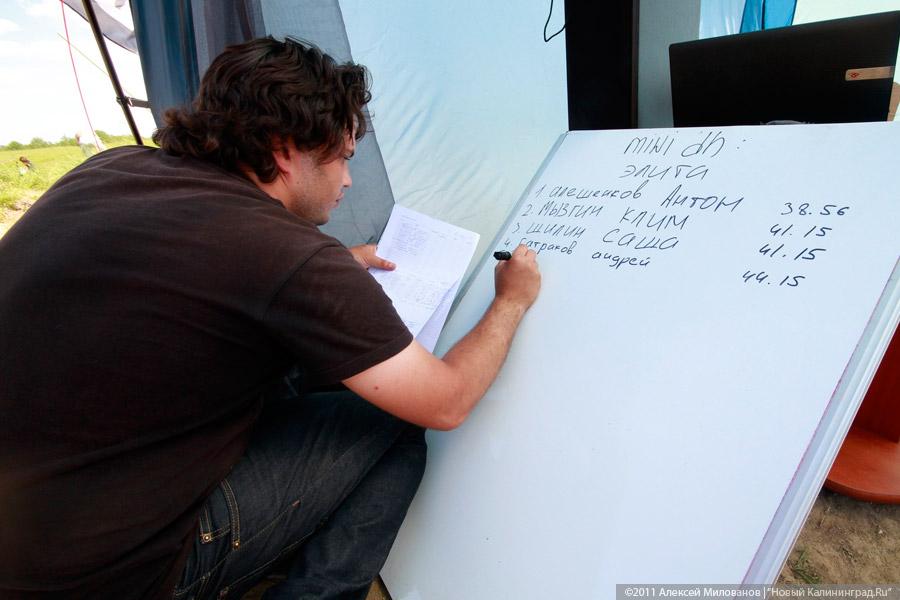 mini dh:
элита
1. алешенков Антон 38.56
2. Мызгин Клим 41.15
3. Шилин Саша 41.15
4. Батраков андрей 44.15
©2011 Алексей Милованов | "Новый Калининград.Ru"